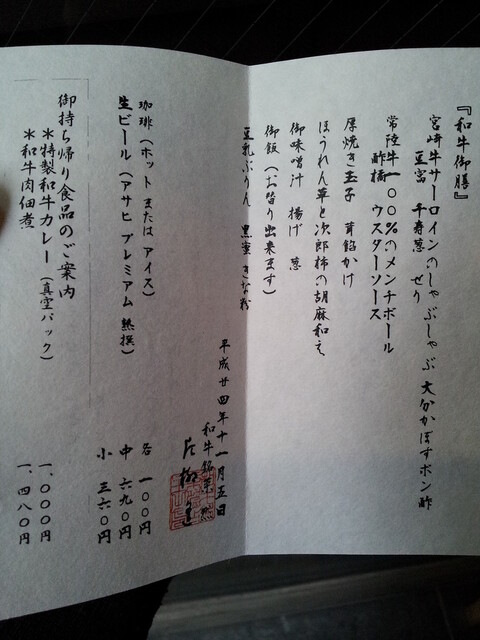 『和牛御膳』
宮崎牛サーロインのしゃぶしゃぶ 大分かぼすポン酢
豆富 千寿葱 せり
常陸牛一〇〇%のメンチボール
酢橘 ウスターソース
厚焼き玉子 茸餡かけ
ほうれん草と次郎柿の胡麻和え
御味噌汁 揚げ 葱
御飯(お替り出来ます)
豆乳ぷりん 黒蜜 きな粉
平成廿四年十一月五日
和牛銘菜
珈琲(ホット または アイス) 各 一〇〇円
生ビール(アサヒ プレミアム 熟撰) 中 六九〇円
小 三六〇円
御持ち帰り食品のご案内
*特製和牛カレー(真空パック) 一、〇〇〇円
*和牛肉佃煮 一、四八〇円